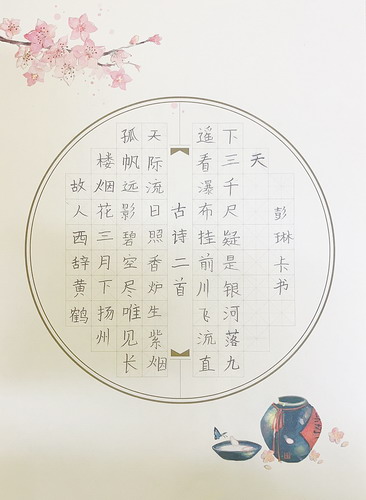 故人西辞黄鹤
楼烟花三月下扬州
孤帆远影碧空尽唯见长
天际流日照香炉生紫烟
古诗二首
遥看瀑布挂前川飞流直
下三千尺疑是银河落九
天
彭琳卡书